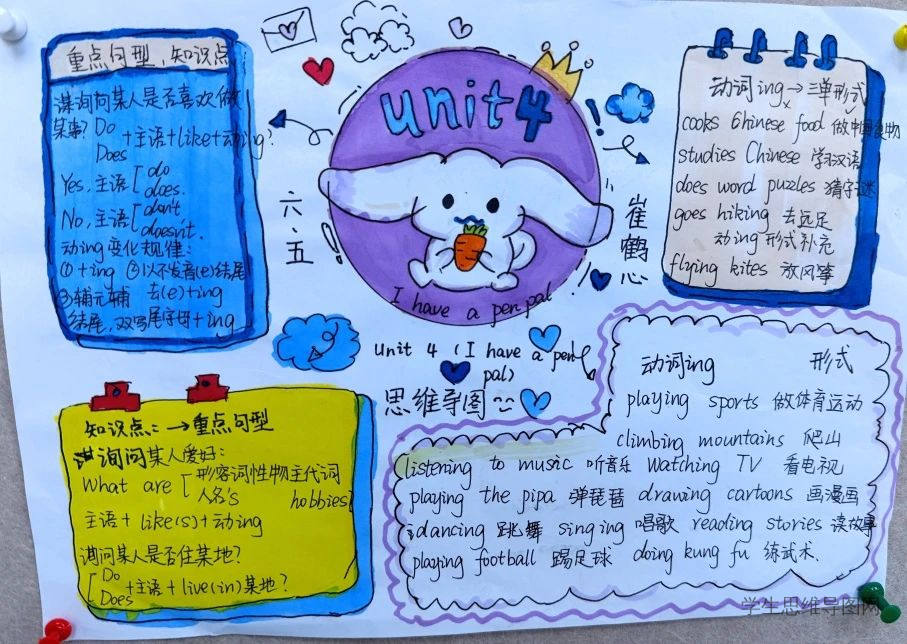 重点句型、知识点
询问某人是否喜欢做
某事? Do
Does +主语+like+动ing?
Yes, 主语 [do
does.
No, 主语 [don't.
doesn't.
动ing变化规律:
①+ing ②以不发音(e)结尾
去(e)+ing
③辅元辅
结尾,双写尾字母+ing
unit4
I have a pen pal
六五
崔鹤心
Unit 4 (I have a pen
pal)
思维导图
动词ing→三单形式
cooks Chinese food 做中国食物
studies Chinese 学习汉语
does word puzzles 猜字谜
goes hiking 去远足
动ing形式补充
flying kites 放风筝
知识点二→重点句型
询问某人爱好:
What are [形容词性物主代词
人名's hobbies?
主语+like(s)+动ing
询问某人是否住某地?
[Do
Does +主语+live(in)某地?
动词ing 形式
playing sports 做体育运动
climbing mountains 爬山
listening to music 听音乐 Watching TV 看电视
playing the pipa 弹琵琶 drawing cartoons 画漫画
dancing 跳舞 singing 唱歌 reading stories 读故事
playing football 踢足球 doing kung fu 练武术.
学生思维导图网